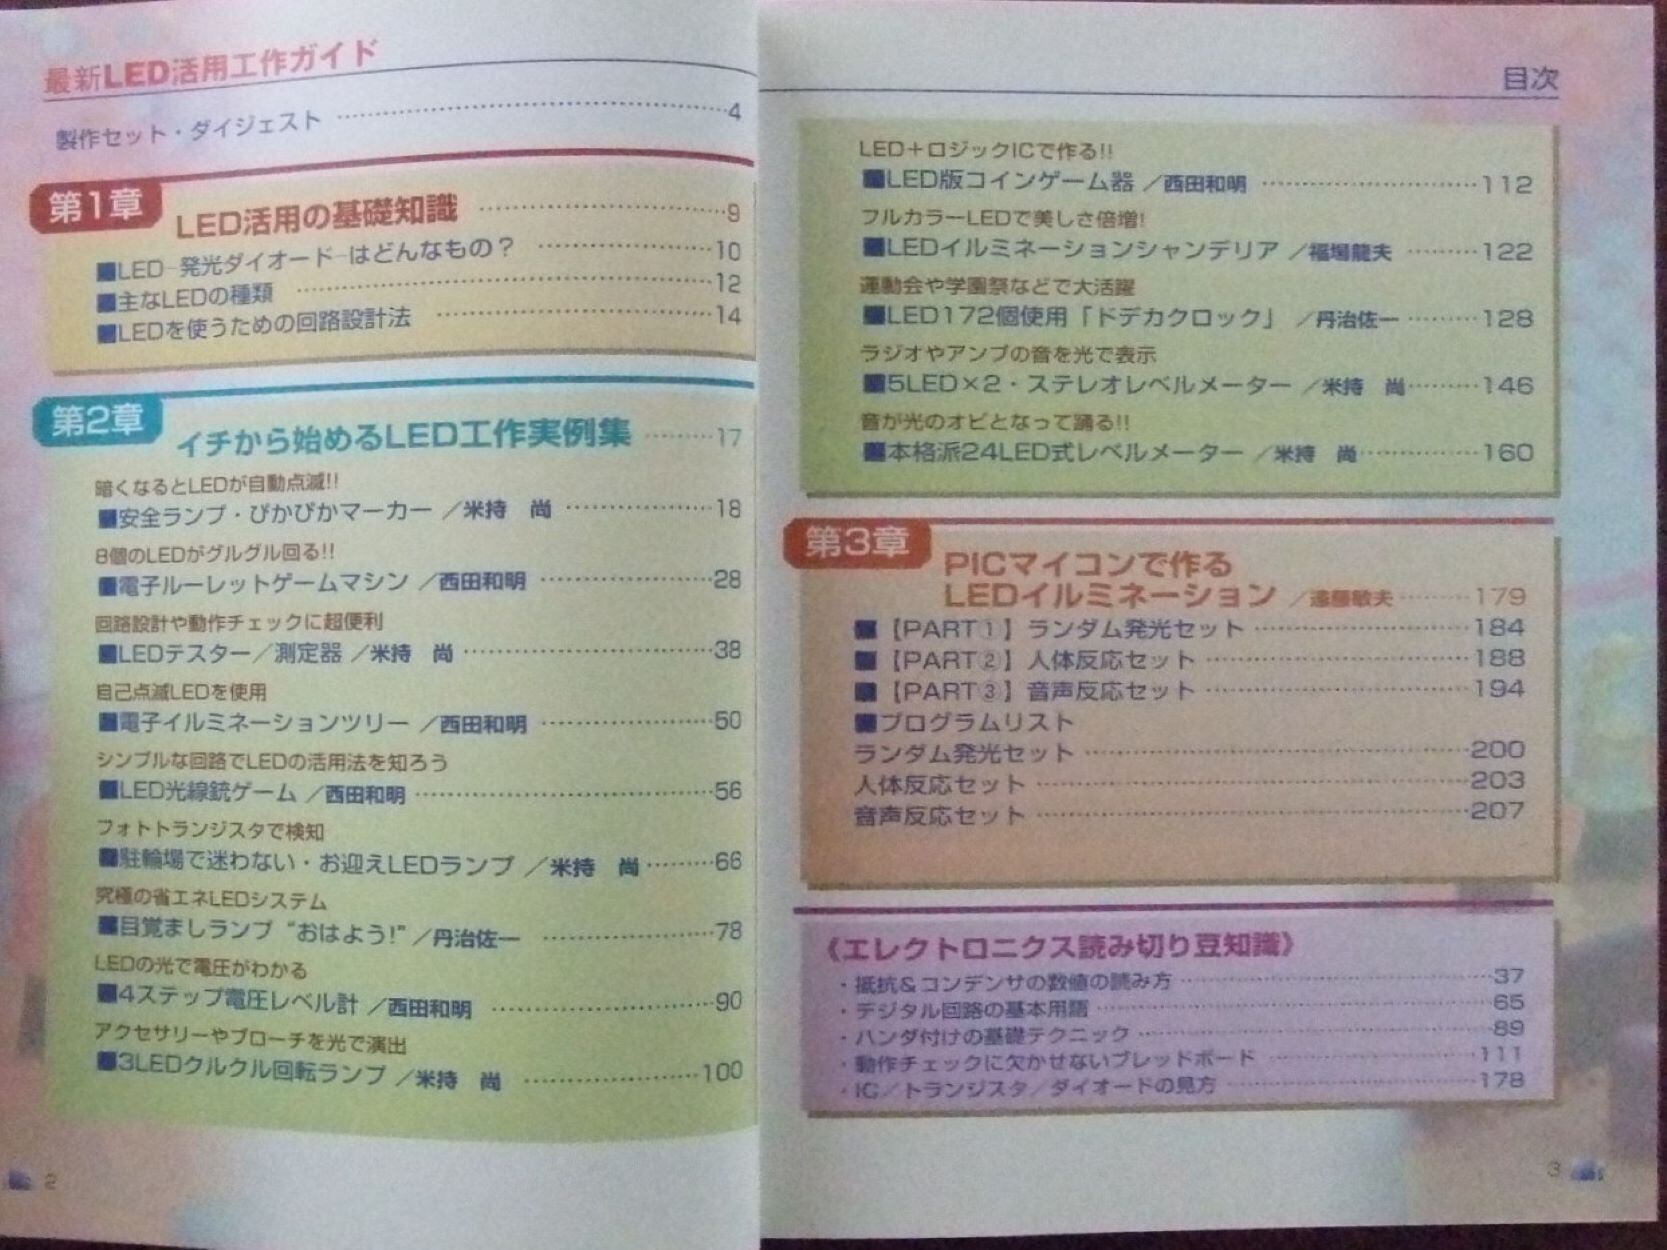 最新LED活用工作ガイド
製作セット・ダイジェスト ……… 4
第1章
LED活用の基礎知識 ……… 9
■LED-発光ダイオード-はどんなもの？ ……… 10
■主なLEDの種類 ……… 12
■LEDを使うための回路設計法 ……… 14
第2章
イチから始めるLED工作実例集 ……… 17
暗くなるとLEDが自動点滅!!
■安全ランプ・ぴかぴかマーカー ／米持　尚 ……… 18
8個のLEDがグルグル回る!!
■電子ルーレットゲームマシン ／西田和明 ……… 28
回路設計や動作チェックに超便利
■LEDテスター／測定器 ／米持　尚 ……… 38
自己点滅LEDを使用
■電子イルミネーションツリー ／西田和明 ……… 50
シンプルな回路でLEDの活用法を知ろう
■LED光線銃ゲーム ／西田和明 ……… 56
フォトトランジスタで検知
■駐輪場で迷わない・お迎えLEDランプ ／米持　尚 ……… 66
究極の省エネLEDシステム
■目覚ましランプ “おはよう!” ／丹治佐一 ……… 78
LEDの光で電圧がわかる
■4ステップ電圧レベル計 ／西田和明 ……… 90
アクセサリーやブローチを光で演出
■3LEDクルクル回転ランプ ／米持　尚 ……… 100
2
目次
LED＋ロジックICで作る!!
■LED版コインゲーム器 ／西田和明 ……… 112
フルカラーLEDで美しさ倍増!
■LEDイルミネーションシャンデリア ／福場龍夫 ……… 122
運動会や学園祭などで大活躍
■LED172個使用「ドデカクロック」 ／丹治佐一 ……… 128
ラジオやアンプの音を光で表示
■5LED×2・ステレオレベルメーター ／米持　尚 ……… 146
音が光のオビとなって踊る!!
■本格派24LED式レベルメーター ／米持　尚 ……… 160
第3章
PICマイコンで作る
LEDイルミネーション ／遠藤敏夫 ……… 179
■【PART①】ランダム発光セット ……… 184
■【PART②】人体反応セット ……… 188
■【PART③】音声反応セット ……… 194
■プログラムリスト
ランダム発光セット ……… 200
人体反応セット ……… 203
音声反応セット ……… 207
《エレクトロニクス読み切り豆知識》
・抵抗＆コンデンサの数値の読み方 ……… 37
・デジタル回路の基本用語 ……… 65
・ハンダ付けの基礎テクニック ……… 89
・動作チェックに欠かせないブレッドボード ……… 111
・IC／トランジスタ／ダイオードの見方 ……… 178
3